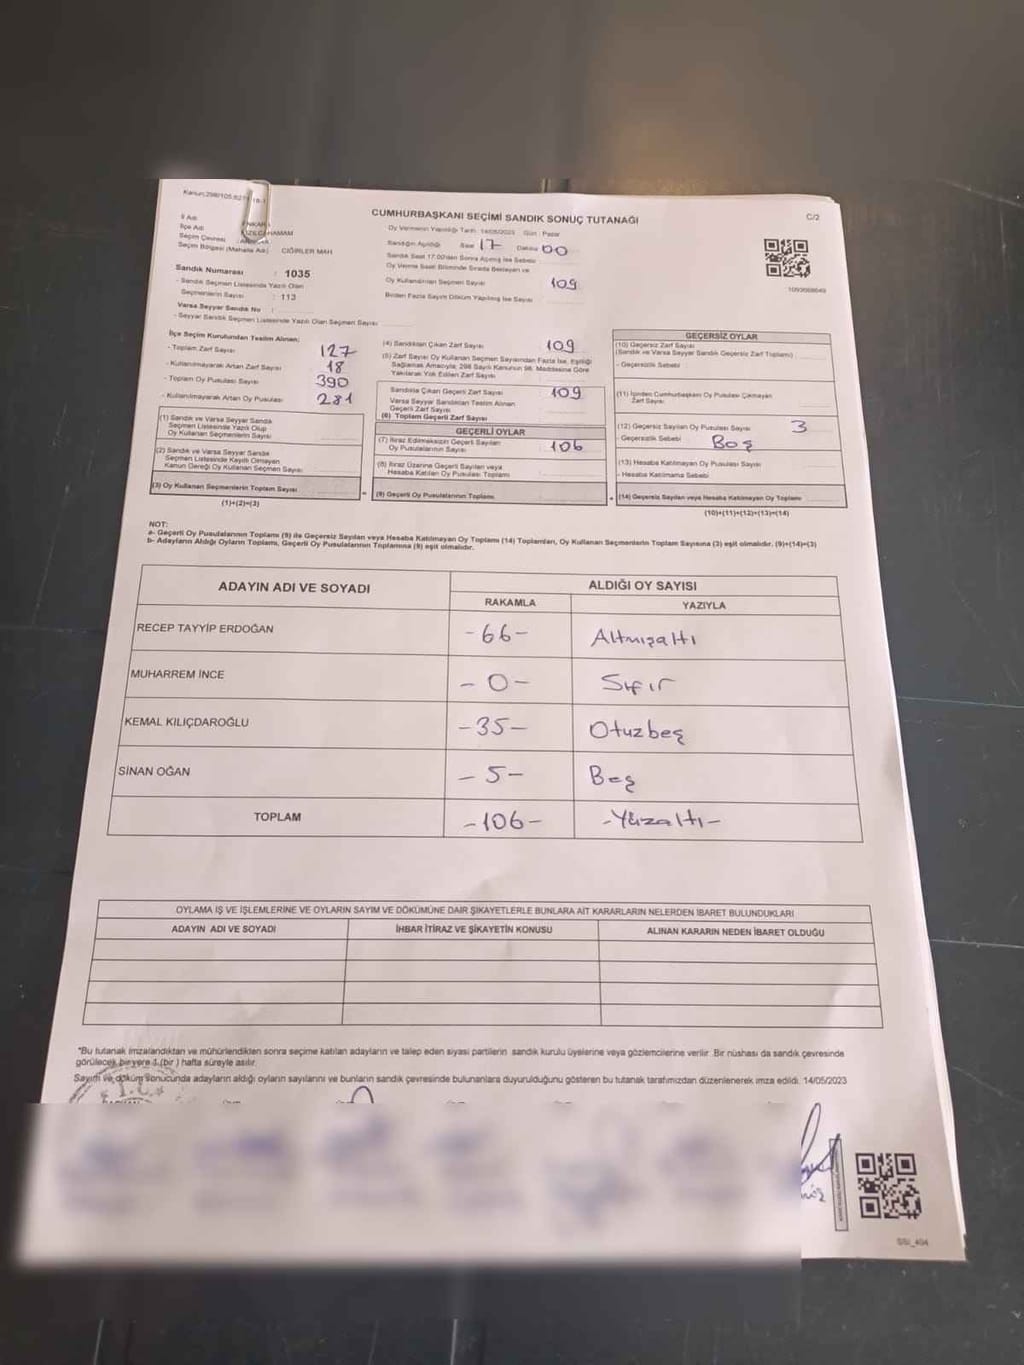 Kanun:298/105
C/2
CUMHURBAŞKANI SEÇİMİ SANDIK SONUÇ TUTANAĞI
İl Adı ANKARA
İlçe Adı KIZILCAHAMAM
Seçim Çevresi
Seçim Bölgesi (Mahalle Adı) ÇIĞIRLER MAH
Sandık Numarası : 1035
- Sandık Seçmen Listesinde Yazılı Olan
Seçmenlerin Sayısı : 113
Varsa Seyyar Sandık No :
- Seyyar Sandık Seçmen Listesinde Yazılı Olan Seçmen Sayısı
Oy Vermenin Yapıldığı Tarih: 14/05/2023 Gün: Pazar
Sandığın Açıldığı Saat 17 Dakika 00
Sandık Saat 17.00'den Sonra Açılmış İse Sebebi
Oy Verme Saati Bitiminde Sırada Bekleyen ve
Oy Kullandırılan Seçmen Sayısı 109
Birden Fazla Sayım Döküm Yapılmış İse Sayısı
1093088649
İlçe Seçim Kurulundan Teslim Alınan;
- Toplam Zarf Sayısı 127
- Kullanılmayarak Artan Zarf Sayısı 18
- Toplam Oy Pusulası Sayısı 390
- Kullanılmayarak Artan Oy Pusulası 281
(1) Sandık ve Varsa Seyyar Sandık
Seçmen Listesinde Yazılı Olup
Oy Kullanan Seçmenlerin Sayısı
(2) Sandık ve Varsa Seyyar Sandık
Seçmen Listesinde Kayıtlı Olmayan
Kanun Gereği Oy Kullanan Seçmen Sayısı
(3) Oy Kullanan Seçmenlerin Toplam Sayısı
(1)+(2)=(3)
(4) Sandıktan Çıkan Zarf Sayısı 109
(5) Zarf Sayısı Oy Kullanan Seçmen Sayısından Fazla İse, Eşitliği
Sağlamak Amacıyla; 298 Sayılı Kanunun 98. Maddesine Göre
Yakılarak Yok Edilen Zarf Sayısı
Sandıkta Çıkan Geçerli Zarf Sayısı 109
Varsa Seyyar Sandıktan Teslim Alınan
Geçerli Zarf Sayısı
(6) Toplam Geçerli Zarf Sayısı
GEÇERLİ OYLAR
(7) İtiraz Edilmeksizin Geçerli Sayılan
Oy Pusulasının Sayısı 106
(8) İtiraz Üzerine Geçerli Sayılan veya
Hesaba Katılan Oy Pusulası Toplamı
(9) Geçerli Oy Pusulalarının Toplamı
GEÇERSİZ OYLAR
(10) Geçersiz Zarf Sayısı
(Sandık ve Varsa Seyyar Sandık Geçersiz Zarf Toplamı)
- Geçersizlik Sebebi
(11) İçinden Cumhurbaşkanı Oy Pusulası Çıkmayan
Zarf Sayısı
(12) Geçersiz Sayılan Oy Pusulası Sayısı 3
- Geçersizlik Sebebi Boş
(13) Hesaba Katılmayan Oy Pusulası Sayısı
- Hesaba Katılmama Sebebi
(14) Geçersiz Sayılan veya Hesaba Katılmayan Oy Toplamı
(10)+(11)+(12)+(13)=(14)
NOT:
a- Geçerli Oy Pusulalarının Toplamı (9) ile Geçersiz Sayılan veya Hesaba Katılmayan Oy Toplamı (14) Toplamları, Oy Kullanan Seçmenlerin Toplam Sayısına (3) eşit olmalıdır. (9)+(14)=(3)
b- Adayların Aldığı Oyların Toplamı, Geçerli Oy Pusulalarının Toplamına (9) eşit olmalıdır.
ADAYIN ADI VE SOYADI ALDIĞI OY SAYISI
RAKAMLA YAZIYLA
RECEP TAYYİP ERDOĞAN -66- Altmışaltı
MUHARREM İNCE -0- Sıfır
KEMAL KILIÇDAROĞLU -35- Otuzbeş
SİNAN OĞAN -5- Beş
TOPLAM -106- -Yüzaltı-
OYLAMA İŞ VE İŞLEMLERİNE VE OYLARIN SAYIM VE DÖKÜMÜNE DAİR ŞİKAYETLERLE BUNLARA AİT KARARLARIN NELERDEN İBARET BULUNDUKLARI
ADAYIN ADI VE SOYADI İHBAR İTİRAZ VE ŞİKAYETİN KONUSU ALINAN KARARIN NEDEN İBARET OLDUĞU
*Bu tutanak imzalandıktan ve mühürlendikten sonra seçime katılan adayların ve talep eden siyasi partilerin sandık kurulu üyelerine veya gözlemcilerine verilir. Bir nüshası da sandık çevresinde
görülecek bir yere 1 (bir) hafta süreyle asılır.
Sayım ve döküm sonucunda adayların aldığı oyların sayılarını ve bunların sandık çevresinde bulunanlara duyurulduğunu gösteren bu tutanak tarafımızdan düzenlenerek imza edildi. 14/05/2023
T.C.
SSI_404